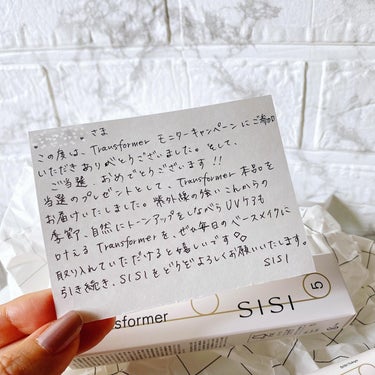 さま
この度は、Transformer モニターキャンペーンにご参加
いただきありがとうございました。そして、
ご当選、おめでとうございます!!
当選のプレゼントとして、Transformer 本品を
お届けいたしました。紫外線の強いこれからの
季節、自然にトーンアップをしながらUVケアも
叶える Transformerを、ぜひ毎日のベースメイクに
取り入れていただけると嬉しいです
引き続き、SISIをどうぞよろしくお願いいたします。
SISI
sformer
SISI
5